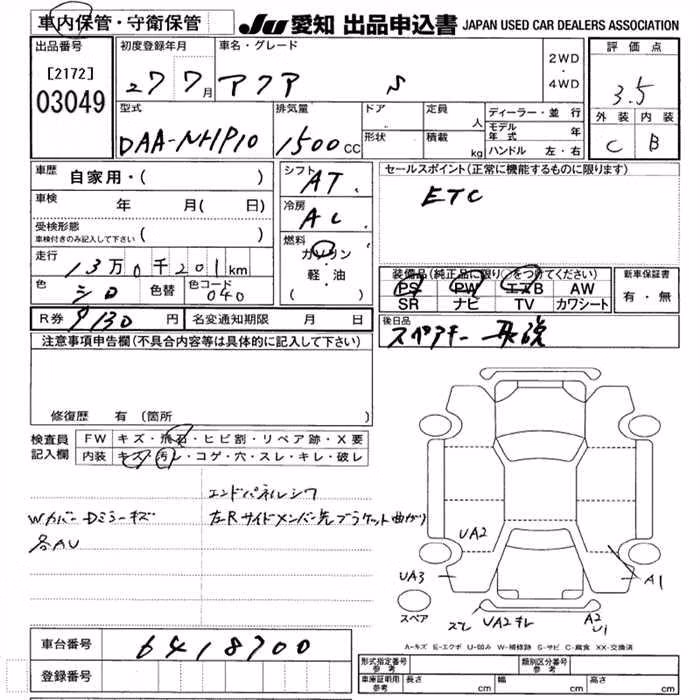 車内保管・守衛保管
JU 愛知 出品申込書 JAPAN USED CAR DEALERS ASSOCIATION
出品番号
[2172]
03049
初度登録年月
27 7月
車名・グレード
アクア S
2WD
・
4WD
評価点
3.5
外装 内装
C B
型式
DAA-NHP10
排気量
1500cc
ドア
形状
定員 人
積載 kg
ディーラー・並行
モデル年式 年
ハンドル 左・右
車歴 自家用・( )
車検 年 月( 日)
受検形態
車検付きのみ記入して下さい ( )
走行 13万0千201km
色 シロ 色替 色コード 040
シフト AT
冷房 AC
燃料
ガソリン
・
軽・油
( )
セールスポイント(正常に機能するものに限ります)
ETC
装備品(純正品に限り○をつけてください)
PS PW エアB AW
SR ナビ TV カワシート
新車保証書
有・無
R券 9130円 名変通知期限 月 日
後日品
スペアキー 取説
注意事項申告欄(不具合内容等は具体的に記入して下さい)
修復歴 有(箇所
検査員記入欄
FW キズ・飛石・ヒビ割・リペア跡・X要
内装 キズ・汚レ・コゲ・穴・スレ・キレ・破レ
エンドパネルシワ
Wカバー Dミラーキズ
左Rサイドメンバー先ブラケット曲がり
各AU
UA2
UA3
A1
スペア
スレ UA2キレ A2 U1
A-キズ E-エクボ U-凹み W-補修跡 S-サビ C-腐食 XX-交換済
車台番号 6418700
登録番号
形式指定番号 参考
類別区分番号 参考
車庫証明用 参考 長さ cm 幅 cm 高さ cm